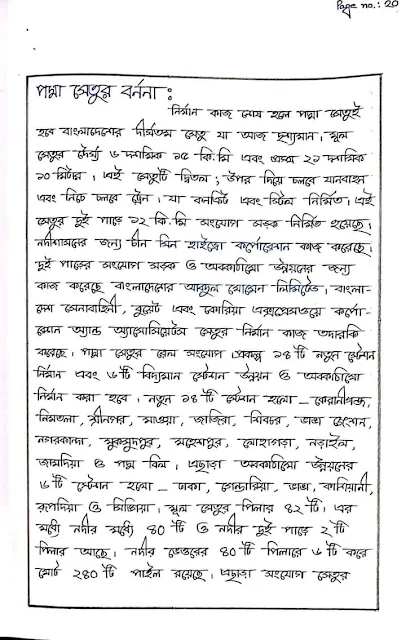 Page no.: 20
পদ্মা সেতুর বর্ননা :
নির্মান কাজ শেষ হলে পদ্মা সেতুই
হবে বাংলাদেশের দীর্ঘতম সেতু যা আজ দৃশ্যমান। মূল
সেতুর দৈর্ঘ্য ৬ দশমিক ১৫ কি.মি এবং প্রস্থ ২১ দশমিক
১০ মিটার। এই সেতুটি দ্বিতল; উপর দিয়ে চলবে যানবাহন
এবং নিচে চলবে ট্রেন। যা কনক্রিট এবং স্টিল নির্মিত। এই
সেতুর দুই পাড়ে ১২ কি.মি সংযোগ সড়ক নির্মিত হয়েছে।
নদীশাসনের জন্য চীন সিন হাইড্রো কর্পোরেশন কাজ করেছে।
দুই পাড়ের সংযোগ সড়ক ও অবকাঠামো উন্নয়নের জন্য
কাজ করেছে বাংলাদেশের আবদুল মোমেন লিমিটেড। বাংলা-
দেশ সেনাবাহিনী, বুয়েট এবং কোরিয়া এক্সপ্রেসওয়ে কর্পো-
রেশন অ্যান্ড অ্যাসোসিয়েটস সেতুর নির্মান কাজ তদারকি
করেছে। পদ্মা সেতুর রেল সংযোগ প্রকল্প ১৪টি নতুন স্টেশন
নির্মান এবং ৬টি বিদ্যমান স্টেশন উন্নয়ন ও অবকাঠামো
নির্মান করা হবে। নতুন ১৪টি স্টেশন হলো – কেরানীগঞ্জ,
নিমতলা, শ্রীনগর, মাওয়া, জাজিরা, শিবচর, ভাঙ্গা জংশন,
নগরকান্দা, মুকসুদপুর, মহেশপুর, লোহাগড়া, নড়াইল,
জামদিয়া ও পদ্ম বিল। এছাড়া অবকাঠামো উন্নয়নের
৬টি স্টেশন হলো – ঢাকা, গেন্ডারিয়া, ভাঙ্গা, কাশিয়ানী,
রূপদিয়া ও সিঙ্গিয়া। মূল সেতুর পিলার ৪২টি। এর
মধ্যে নদীর মধ্যে ৪০টি ও নদীর দুই পাড়ে ২টি
পিলার আছে। নদীর ভেতরের ৪০টি পিলারে ৬টি করে
মোট ২৪০টি পাইল রয়েছে। এছাড়া সংযোগ সেতুর